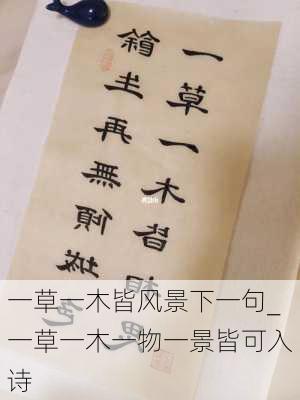 一草一木皆相思
再無傾城色
一草一木皆风景下一句_
一草一木一物一景皆可入
诗